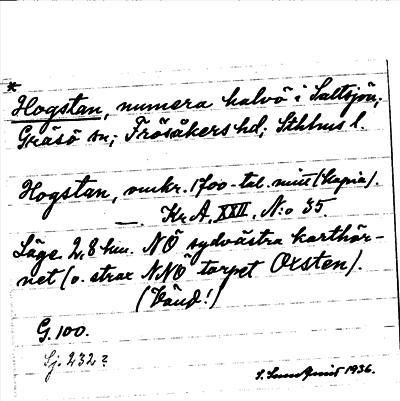 *
Hogstan, numera halvö i Saltsjön,
Gräsö sn; Frösåkers hd; Sthlms l.
Hogstan, omkr. 1700-tal. mitt (kopia).
—. Kr. A. XXII, N:o 35.
Läge 2,8 km. NÖ sydvästra karthör-
net (o. strax NNÖ torpet Oxsten).
(Vänd!)
G. 100.
Sj. 232?
1936.